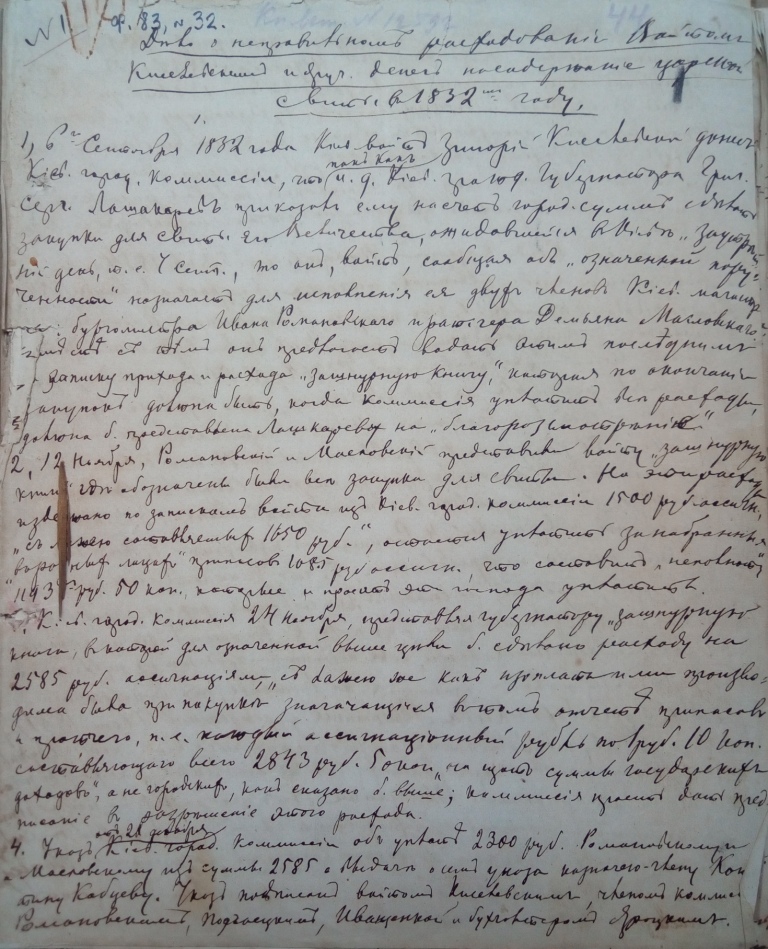 N 1 Ф. 83, N. 32. 44
Дѣло о неправильномъ расходованіи Войтомъ
Киселевскимъ и друг. денегъ на содержаніе царской
свиты въ 1832мъ году.
1, 6го Сентября 1832 года Кіев. войтъ Григорій Киселевскій донесъ
Кіев. город. Коммиссіи, что такъ какъ и. д. Кіев. гражд. Губернатора Григ.
Серг. Лашкаревъ приказалъ ему на счетъ город. суммъ сдѣлать
закупки для свиты Его Величества, ожидавшейся въ Кіевъ „завтраш
ній день, т. е. 7 сент., то онъ, войтъ, сообщая объ „означенной поруч
ченности" назначаетъ для исполненія ея двухъ членовъ Кіев. магистр
бургомистра Ивана Романовскаго и ратсгера Демьяна Масловскаго
вмѣстѣ съ тѣмъ онъ предлагаетъ выдать этимъ послѣднимъ
записку прихода и расхода „зашнурную книгу," которая по окончаніи
закупокъ должна быть, когда Коммиссія уплатитъ всѣ расходы,
должна б. представлена Лашкареву на „благоразсмотрѣніе"
2, 12 Ноября, Романовскій и Масловскій представили войту „зашнурную
книгу" гдѣ обозначены были всѣ закупки для свиты. На эти расходы
издержано по запискамъ войта изъ Кіев. город. коммиссіи 1500 руб. ассигн.
„съ лажею составляемыхъ 1650 руб.", остается уплатить за набранные
припасовъ 1085 руб. ассигн., что составитъ
1193 руб. 50 коп., которые и просятъ эти господа уплатить.
Кіев. город. Коммиссія 24 Ноября, представляя губернатору „зашнурную
книгу, въ которой для означенной выше цѣли б. сдѣлано расходу на
2585 руб. ассигнаціями, „съ лажею же какъ и платы ими произво-
дима была при покупкѣ значащихся въ томъ отчетѣ припасовъ
и прочего, т. е. каждый ассигнаціонный рубль по 1 руб. 10 коп.
составляющаго всего 2843 руб. 50 коп. „на щетъ суммы государскихъ
доходовъ", а не городскихъ, какъ сказано б. выше; Коммиссія проситъ дать пред
писаніе въ разрѣшеніе этого расхода.
4. Указъ отъ 21 декабря Кіев. город. Коммиссіи объ уплатѣ 2300 руб. Романовскому и
Масловскому изъ суммы 2585 о выдачѣ указа казначею-члену Кон
Кабцеву. Указъ подписанъ войтомъ Киселевскимъ, членомъ коммис
Романовскимъ, Подгаецкимъ, Иващенкой и бухгалтеромъ Яроцкимъ.